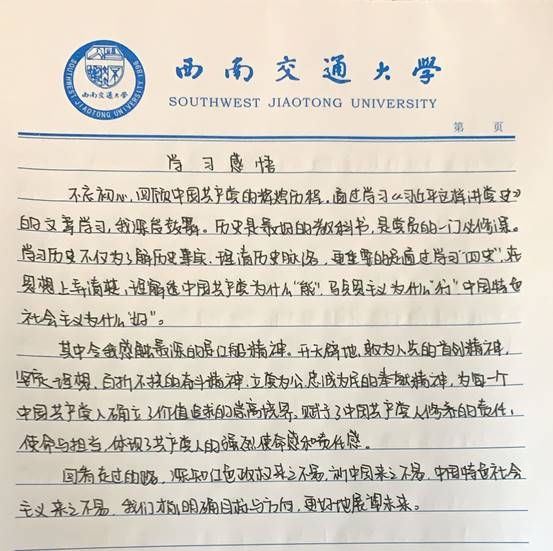 西南交通大学
SOUTHWEST JIAOTONG UNIVERSITY
SOUTHWEST JIAOTONG UNIVERSITY 1896
西南交通大学
第 页
学习感悟
不忘初心，回顾中国共产党的辉煌历程，通过学习《习近平这样讲党史》
的文章学习，我深受鼓舞。历史是最好的教科书，是党员的一门必修课。
学习历史不仅为了解历史事实、理清历史脉络，更重要的是通过学习“四史”，在
思想上弄清楚、理解透中国共产党为什么“能”，马克思主义为什么“行”，中国特色
社会主义为什么“好”。
其中令我感触最深的是红船精神。开天辟地，敢为人先的首创精神，
坚定理想、百折不挠的奋斗精神，立党为公，忠诚为民的奉献精神，为每一个
中国共产党人确立了价值追求的崇高境界，赋予了中国共产党人修养的责任，
使命与担当，体现了共产党人的强烈使命感和责任感。
回看走过的路，深知红色政权来之不易，新中国来之不易，中国特色社会
主义来之不易，我们才能明确目标与方向，更好地展望未来。